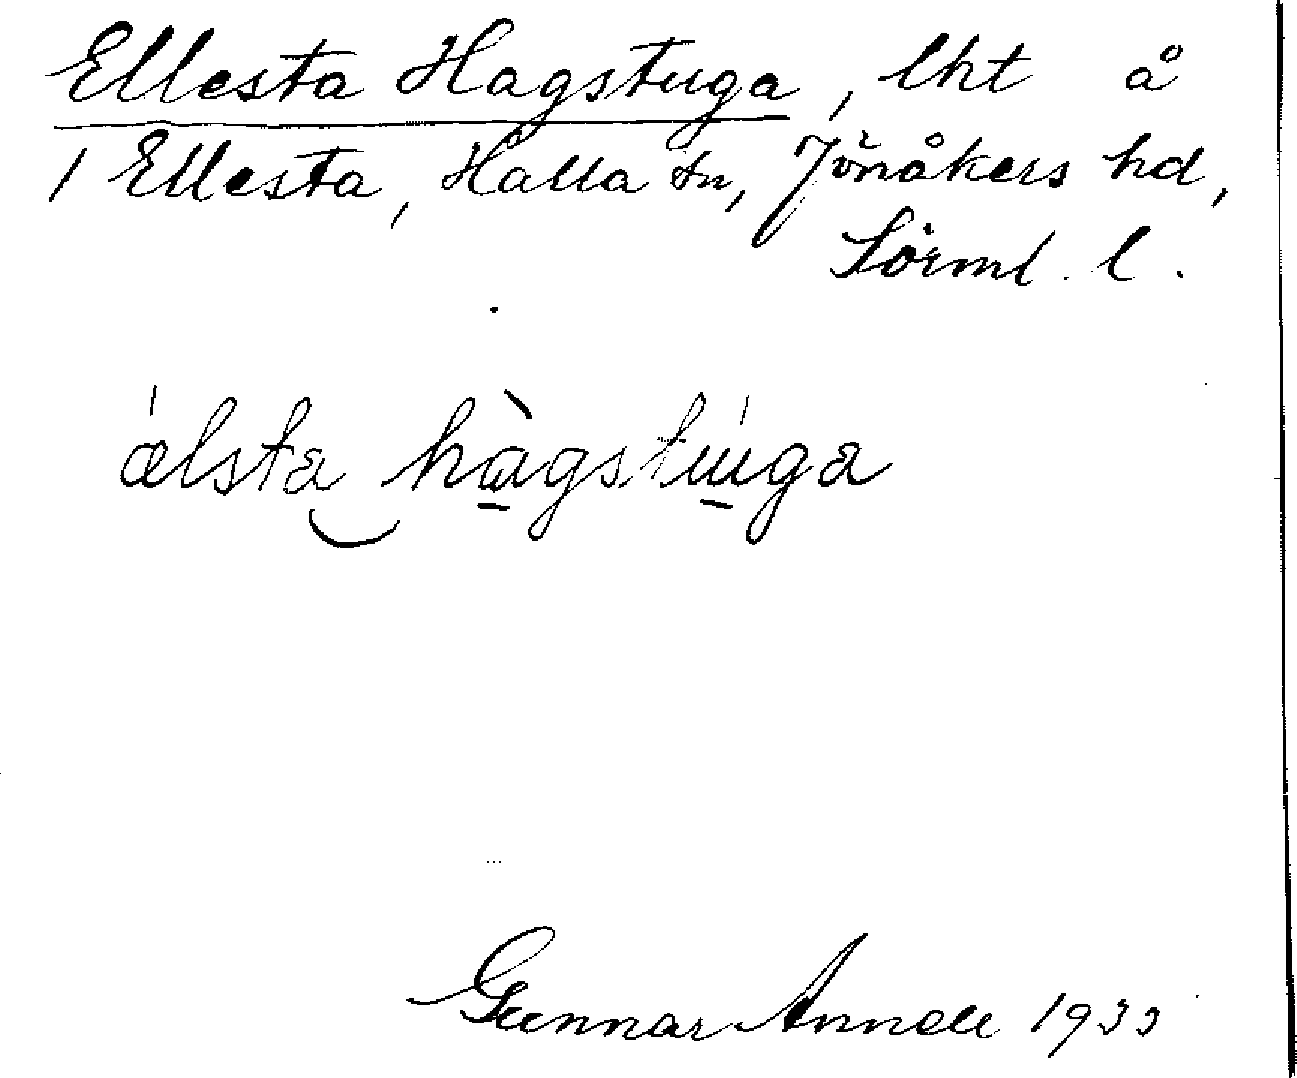 Ellesta Hagstuga, lht å
1 Ellesta, Halla sn, Jönåkers hd,
Sörml. l.
ælsta hàgstúga
Gunnar Annell 1933